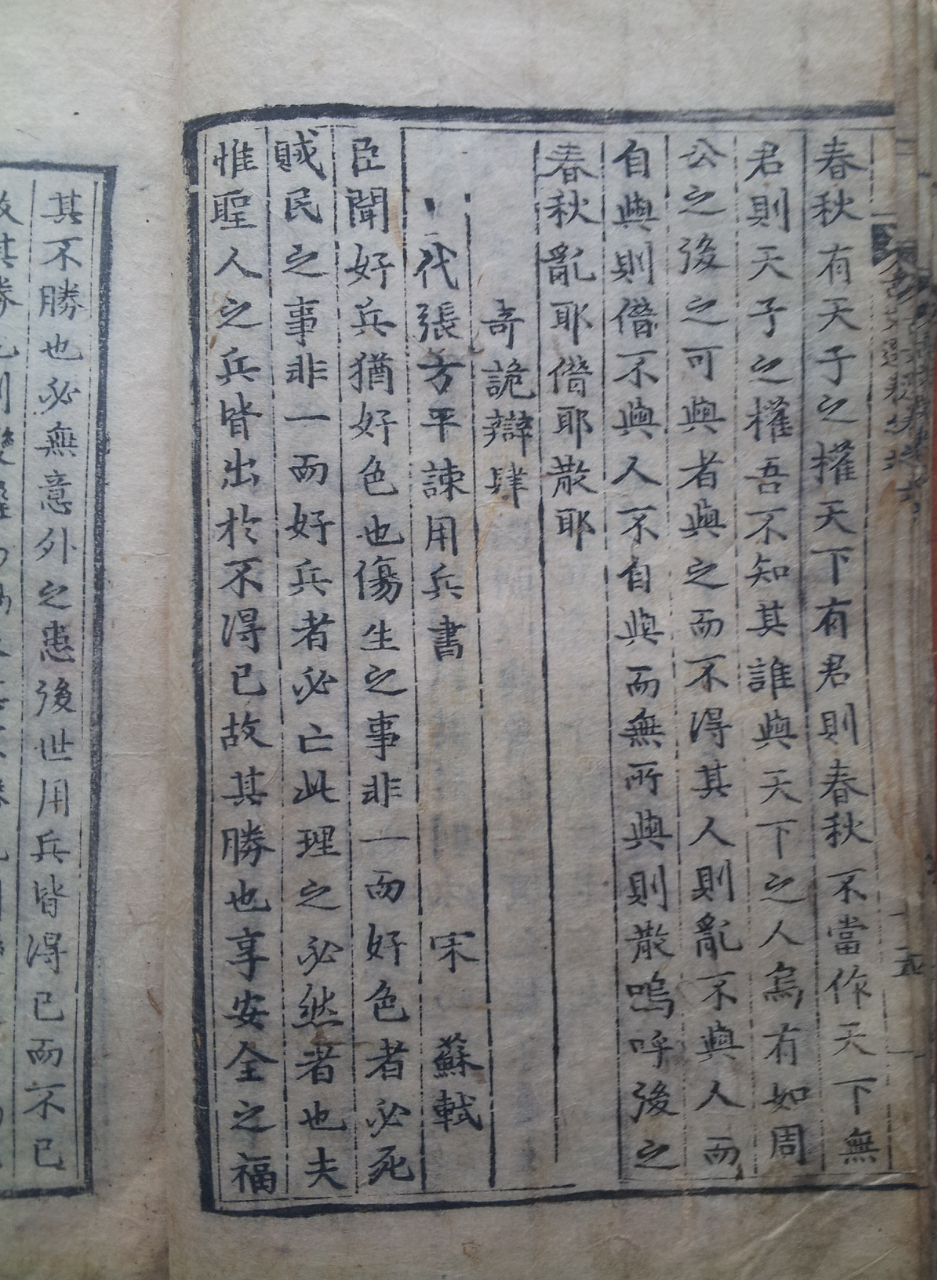 春秋有天子之權天下有君則春秋不當作天下無
君則天子之權吾不知其誰與天下之人烏有如周
公之後之可與者與之而不得其人則亂不與人而
自與則僭不與人不自與而無所與則散嗚呼後之
春秋亂耶僭耶散耶
奇詭辯肆
代張方平諫用兵書 宋 蘇軾
臣聞好兵猶好色也傷生之事非一而好色者必死
賊民之事非一而好兵者必亡此理之必然者也夫
惟聖人之兵皆出於不得已故其勝也享安全之福
其不勝也必無意外之患後世用兵皆得已而不已
故其勝也則變